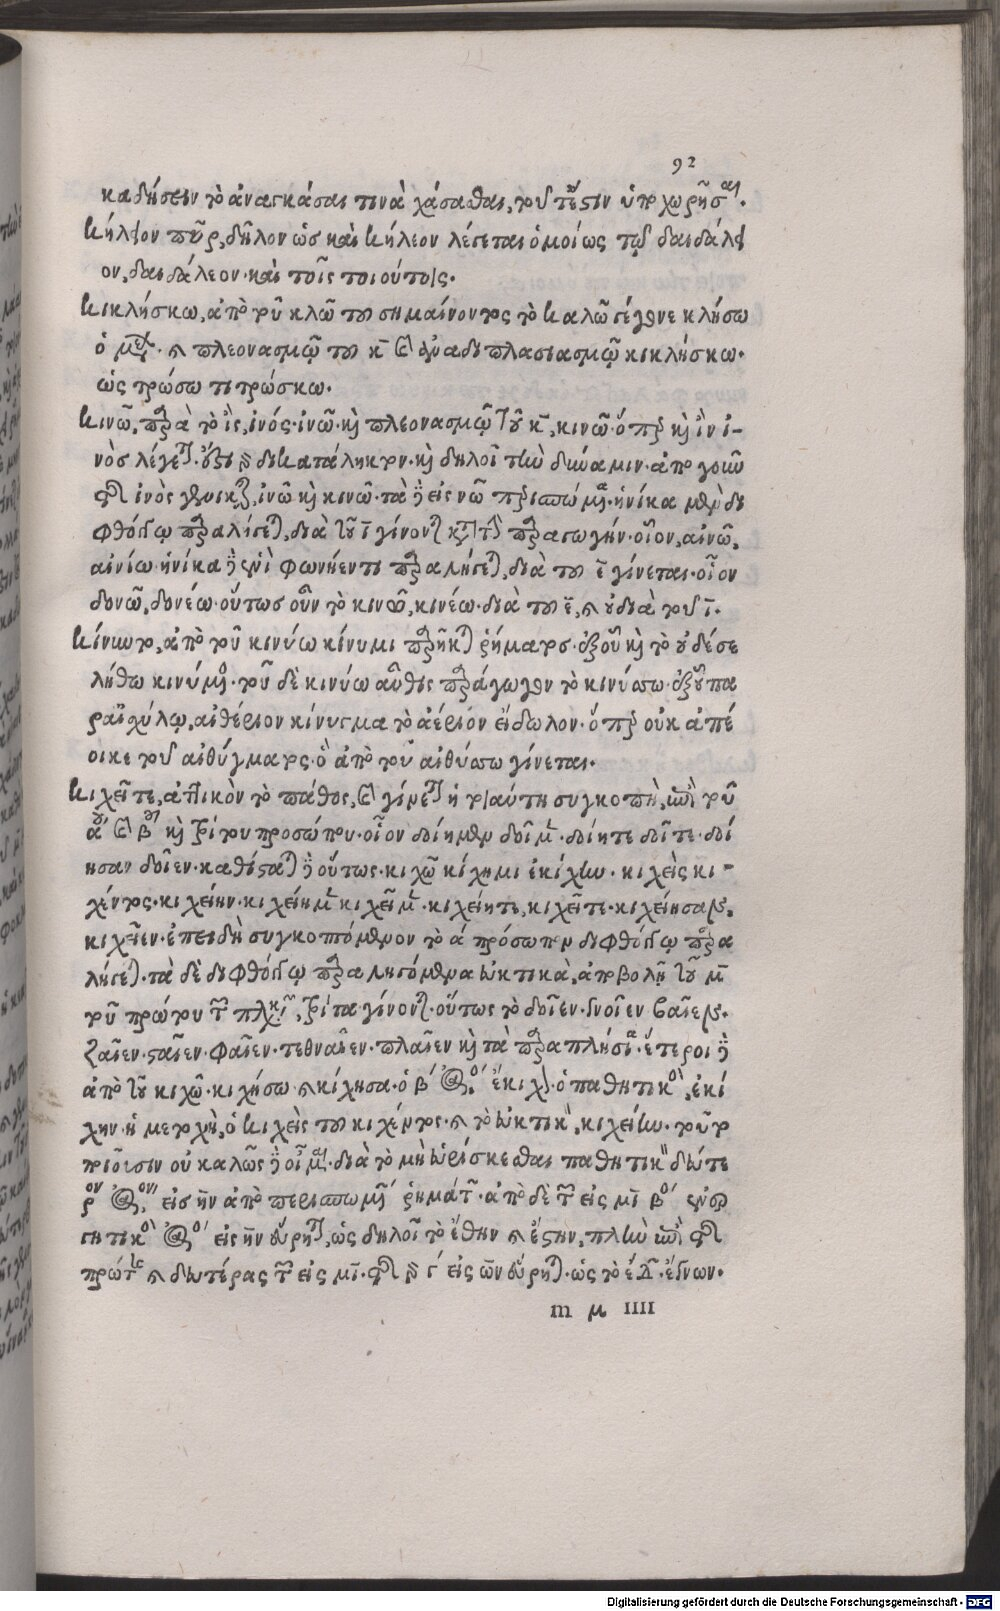 92
καδήσειν τὸ ἀναγκάσαι τινὰ χάσασθαι, τουτέστιν ὑποχωρῆσαι.
κήλειον πῦρ, δῆλον ὡς καὶ κήλεον λέγεται ὁμοίως τῷ δαιδάλει
ον, δαιδάλεον· καὶ τοῖς τοιούτοις.
κικλήσκω, ἀπὸ τοῦ κλῶ τοῦ σημαίνοντος τὸ καλῶ γέγονε κλήσω
ὁ μέλλων· καὶ πλεονασμῷ τοῦ κ καὶ ἀναδιπλασιασμῷ κικλήσκω.
ὡς τρώσω τιτρώσκω.
κινῶ, παρὰ τὸ ἲς, ἰνός· ἰνῶ· καὶ πλεονασμῷ τοῦ κ, κινῶ· ὅπερ καὶ ἲν ἰ-
νὸς λέγεται· ὀξυ δικατάληκτον· καὶ δηλοῖ τὴν δύναμιν· ἀπὸ γοῦν
τῆς ἰνὸς γενικῆς, ἰνῶ καὶ κινῶ· τὰ γὰρ εἰς νῶ περισπώμενα· ἡνίκα μὲν δι
φθόγγῳ παραλήγεται, διὰ τοῦ ι γίνονται κατὰ τὴν παραγωγήν· οἷον, αἰνῶ,
αἰνίω· ἡνίκα γὰρ ἑνὶ φωνήεντι παραλήγεται, διὰ τοῦ ε γίνεται· οἷον
δονῶ, δονέω· οὕτως οὖν τὸ κινῶ, κινέω· διὰ τοῦ ε, καὶ οὐ διὰ τοῦ ι.
κίνυντο, ἀπὸ τοῦ κινύω κίνυμι παρῆκται ῥήματος· ἐξ οὗ καὶ τὸ οὐδέ σε
λήθω κινύμενος· τοῦ δὲ κινύω αὖθις παράγωγον τὸ κινύσσω· ἐξ οὗ πα
ραἰσχύλῳ, αἰθέριον κίνυγμα τὸ ἀέριον εἴδωλον· ὅπερ οὐκ ἀπέ
οικε τοῦ αἰθύγματος· ὃ ἀπὸ τοῦ αἰθύσσω γίνεται.
κιχεῖτε, ἀττικὸν τὸ πάθος, καὶ γίνεται ἡ τοιαύτη συγκοπὴ, ἐπὶ τοῦ
α καὶ β καὶ τρίτου προσώπου· οἷον δοίημεν δοῖμεν· δοίητε δοῖτε· δοί
ησαν δοῖεν· καθίσταται γὰρ οὕτως· κιχῶ κίχημι ἐκίχην· κιχεὶς κι-
χέντος· κιχείην· κιχείημεν κιχεῖμεν· κιχείητε, κιχεῖτε· κιχείησαν,
κιχεῖεν· ἐπειδὴ συγκοπτόμενον τὸ ά πρόσωπον διφθόγγῳ παρα
λήγεται· τὰ δὲ διφθόγγῳ παραληγόμενα εὐκτικὰ, ἀποβολῇ τοῦ μ
τοῦ πρώτου τῶν πληθυντικῶν, τρίτα γίνονται· οὕτως τὸ δοῖεν· γνοῖεν βαῖεν.
ζαῖεν· σταῖεν· φαῖεν· τεθναῖεν· πλαῖεν καὶ τὰ παραπλήσια· ἕτεροι γὰρ
ἀπὸ τοῦ κιχῶ· κιχήσω καὶ κίχησα· ὁ β ἀόριστος ἔκιχον· ὁ παθητικὸς, ἐκί
χην· ἡ μετοχὴ, ὁ κιχεὶς τοῦ κιχέντος· καὶ τὸ εὐκτικὸν, κιχείην· τοῦτο
ποιοῦσιν οὐ καλῶς γὰρ οἶμαι· διὰ τὸ μὴ εὑρίσκεσθαι παθητικὸν δεύτε
ρον ἀόριστον εἰς ην ἀπὸ περισπωμένων ῥημάτων· ἀπὸ δὲ τῶν εἰς μι β ἐνερ
γητικὸς ἀόριστος εἰς ην εὕρηται, ὡς δηλοῖ τὸ ἔθην καὶ ἔστην, πλὴν ἐπὶ τῆς
πρώτης καὶ δευτέρας τῶν εἰς μι· τῆς γ εἰς ων εὕρηται· ὡς τὸ ἔδων· ἔγνων.
m μ IIII
Digitalisierung gefördert durch die Deutsche Forschungsgemeinschaft - DFG